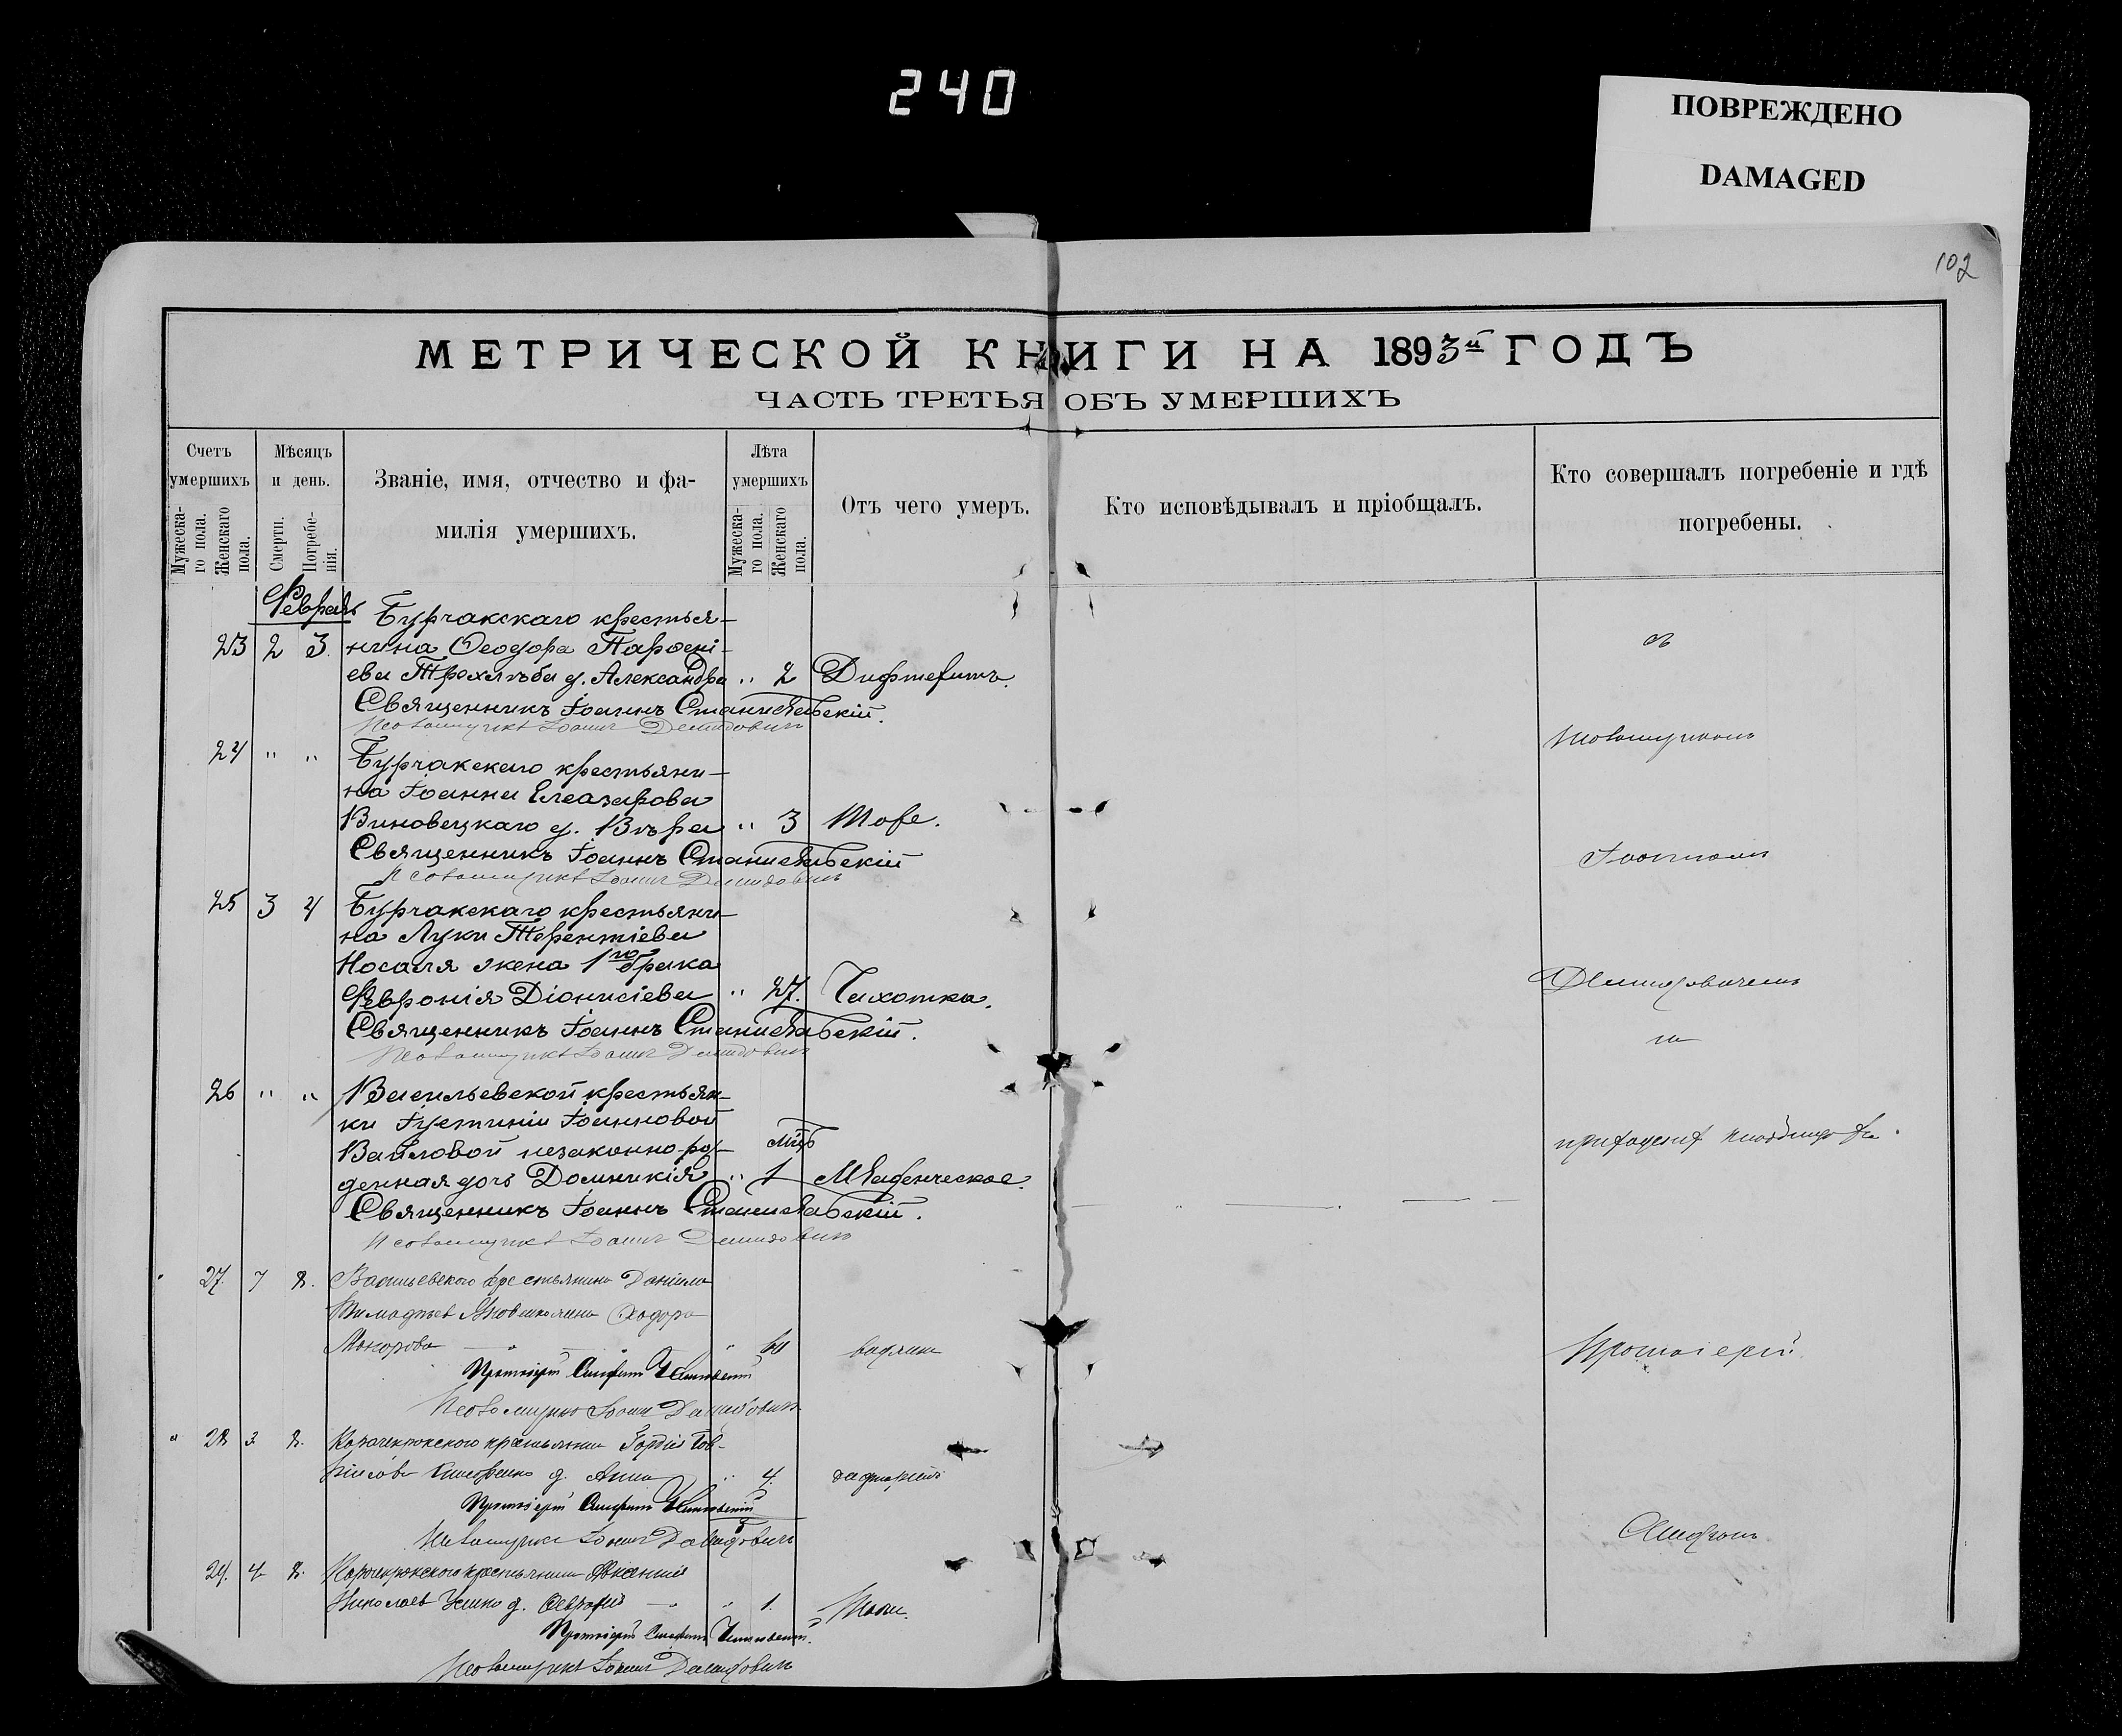 240
ПОВРЕЖДЕНО
DAMAGED
102
МЕТРИЧЕСКОЙ КНИГИ НА 1893й ГОДЪ
ЧАСТЬ ТРЕТЬЯ ОБЪ УМЕРШИХЪ
Счетъ умершихъ
Мужеска-го пола.
Женскаго пола.
Мѣсяцъ и день.
Смерти.
Погребе-нія.
Званіе, имя, отчество и фа-
милія умершихъ.
Лѣта умершихъ
Мужеска-го пола.
Женскаго пола.
Отъ чего умеръ.
Кто исповѣдывалъ и пріобщалъ.
Кто совершалъ погребеніе и гдѣ
погребены.
Февраль
Бурчакскаго крестья-
23 2 3. нина Ѳеодора Парѳені-
ева Трохлѣба д. Александра " 2 Дифтеритъ.
Священникъ Іоаннъ Станиславскій.
Псаломщикъ Іоаннъ Демидовичъ
24 " " Бурчакскаго крестьяни-
на Іоанна Елеазарова
Виновецкаго д. Вѣра " 3 Тоже.
Священникъ Іоаннъ Станиславскій
Псаломщикъ Іоаннъ Демидовичъ
25 3 4 Бурчакскаго крестьяни-
на Луки Терентіева
Носаля жена 1го брака
Февронія Діонисіева " 27. Чахотка.
Священникъ Іоаннъ Станиславскій.
Псаломщикъ Іоаннъ Демидовичъ
26 " " Васильевской крестьян-
ки Іустиніи Іоанновой
Вайловой незаконно-рож-
мѣц
денная дочь Домникія " 1 Младенческое.
Священникъ Іоаннъ Станиславскій.
Псаломщикъ Іоаннъ Демидовичъ
27. 7 8. Васильевскаго крестьянина Даніила
Макарова
Протоіерей
Псаломщикъ Іоаннъ Демидовичъ
28 3 8. крестьянина Гордія
д. Анна " 4.
Протоіерей
Псаломщикъ Іоаннъ Демидовичъ
29. 4 8. крестьянина
Николаев д. " 1. Тоже.
Протоіерей
Псаломщикъ Іоаннъ Демидовичъ
съ
Псаломщикомъ
Іоанномъ
Демидовичемъ
на
приходскомъ кладбищѣ
Протоіерей